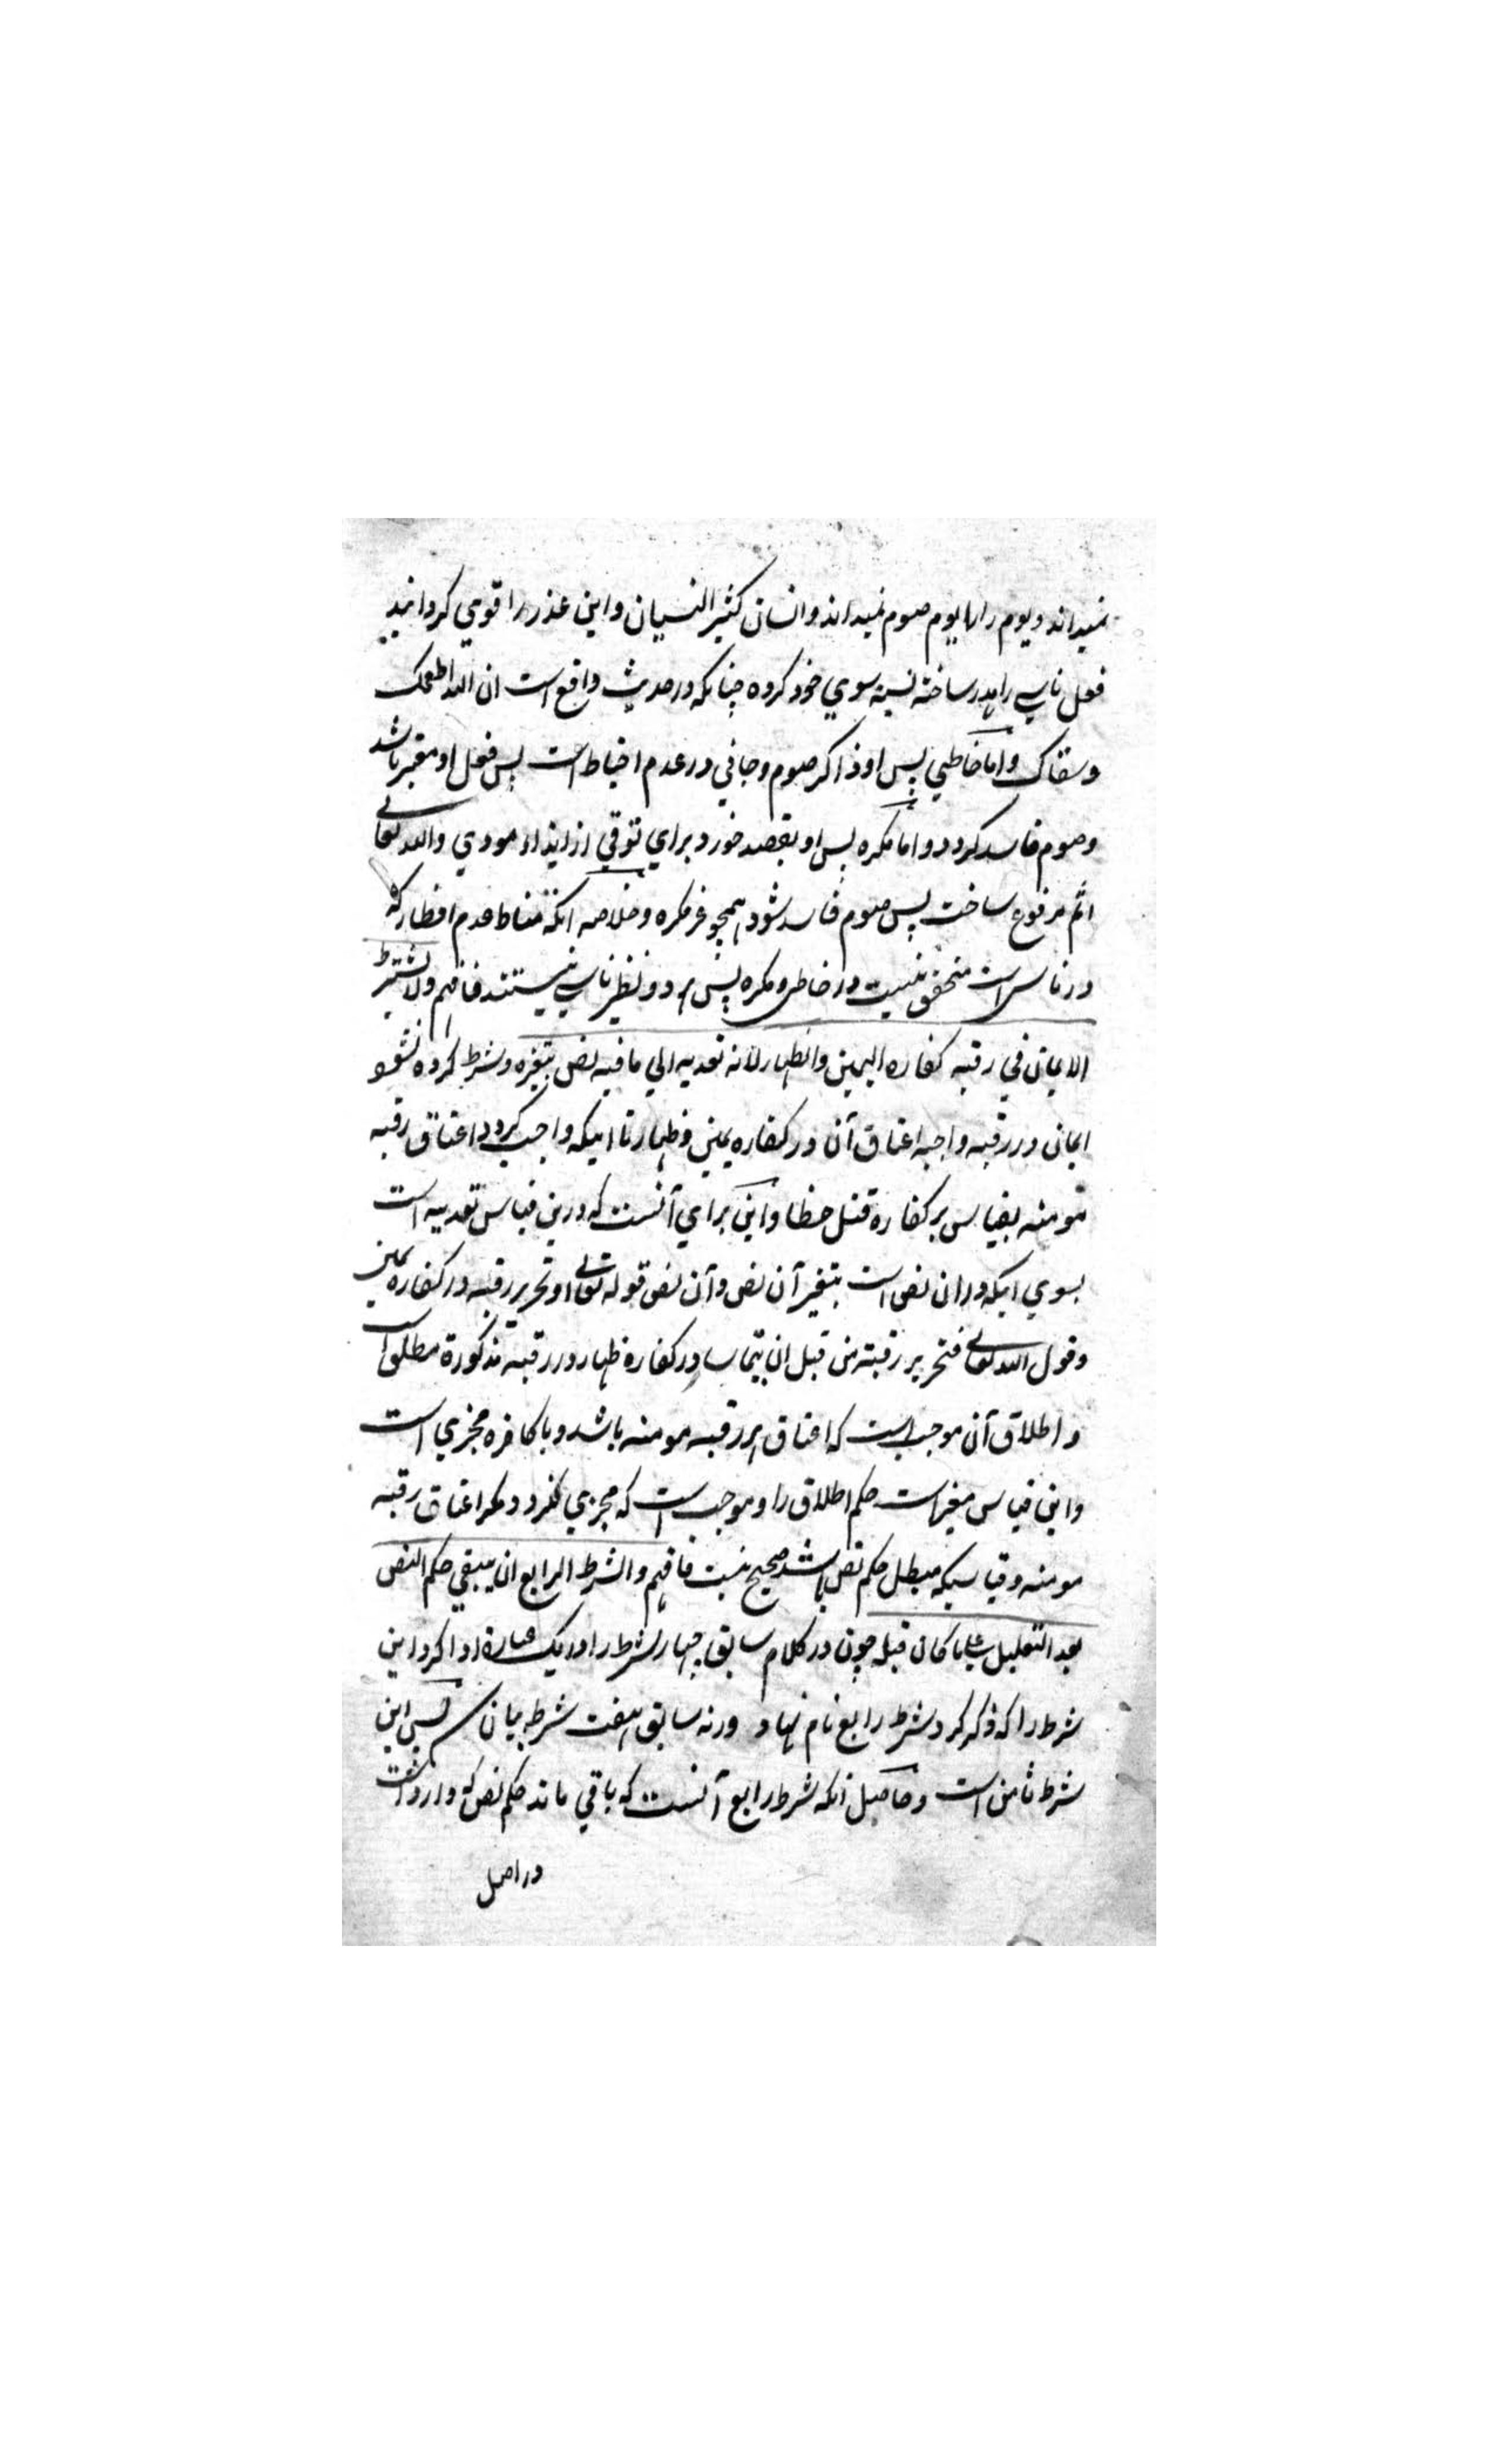 نمیداند و یوم را یوم صوم نمیداند و انسان کثیر النسیان و این عذر را قوی کردانید
فعل ناسی را هدر ساخته نسبة سوی خود کرده چنانکه در حدیث واقع است ان الله اطعمک
وسقاک و اما خاطی پس او ذاکر صوم و جانی در عدم احتیاط است پس فعل او معتبر باشد
و صوم فاسد کردد و اما مکره پس او بقصد خورد برای توقی از ایذاء موذی والله تعالی
اثم مرفوع ساخت پس صوم فاسد شود همچو غیر مکره و خلاصه انکه مناط عدم افطار که
در ناسی است متحقق نیست در خاطی و مکره پس هر دو نظیر ناسی نیستند فافهم ولا یشترط
الایمان فی رقبه کفاره الیمین والظهار لانه تعدیه الی ما فیه نص بتغیره و شرط کرده نشود
ایمان در رقبه واجبه اعتاق آن در کفاره یمین و ظهار تا اینکه واجب کردد اعتاق رقبه
مومنه بقیاس بر کفاره قتل خطا و این برای آنست که درین قیاس تعدیه است
بسوی اینکه دران نص است بتغیر آن نص و آن نص قوله تعالی او تحریر رقبه در کفاره یمین
و قول الله تعالی فتحریر رقبة من قبل ان یتماسا در کفاره ظهار و رقبه مذکورة مطلق است
و اطلاق آن موجب است که اعتاق هر رقبه مومنه باشد و یا کافره مجزی است
و این قیاس مغیر است حکم اطلاق را و موجب است که مجزی نکردد مکر اعتاق رقبه
مومنه و قیاسیکه مبطل حکم نص باشد صحیح نیست فافهم والشرط الرابع ان یبقی حکم النص
بعد التعلیل علی ما کان قبله چون در کلام سابق چهار شرط را در یک عبارة ادا کرد این
شرط را که ذکر کرد شرط رابع نام نهاد ورنه سابق هفت شرط بیان پس این
شرط ثامن است و حاصل انکه شرط رابع آنست که باقی ماند حکم نص که وارد است
در اصل